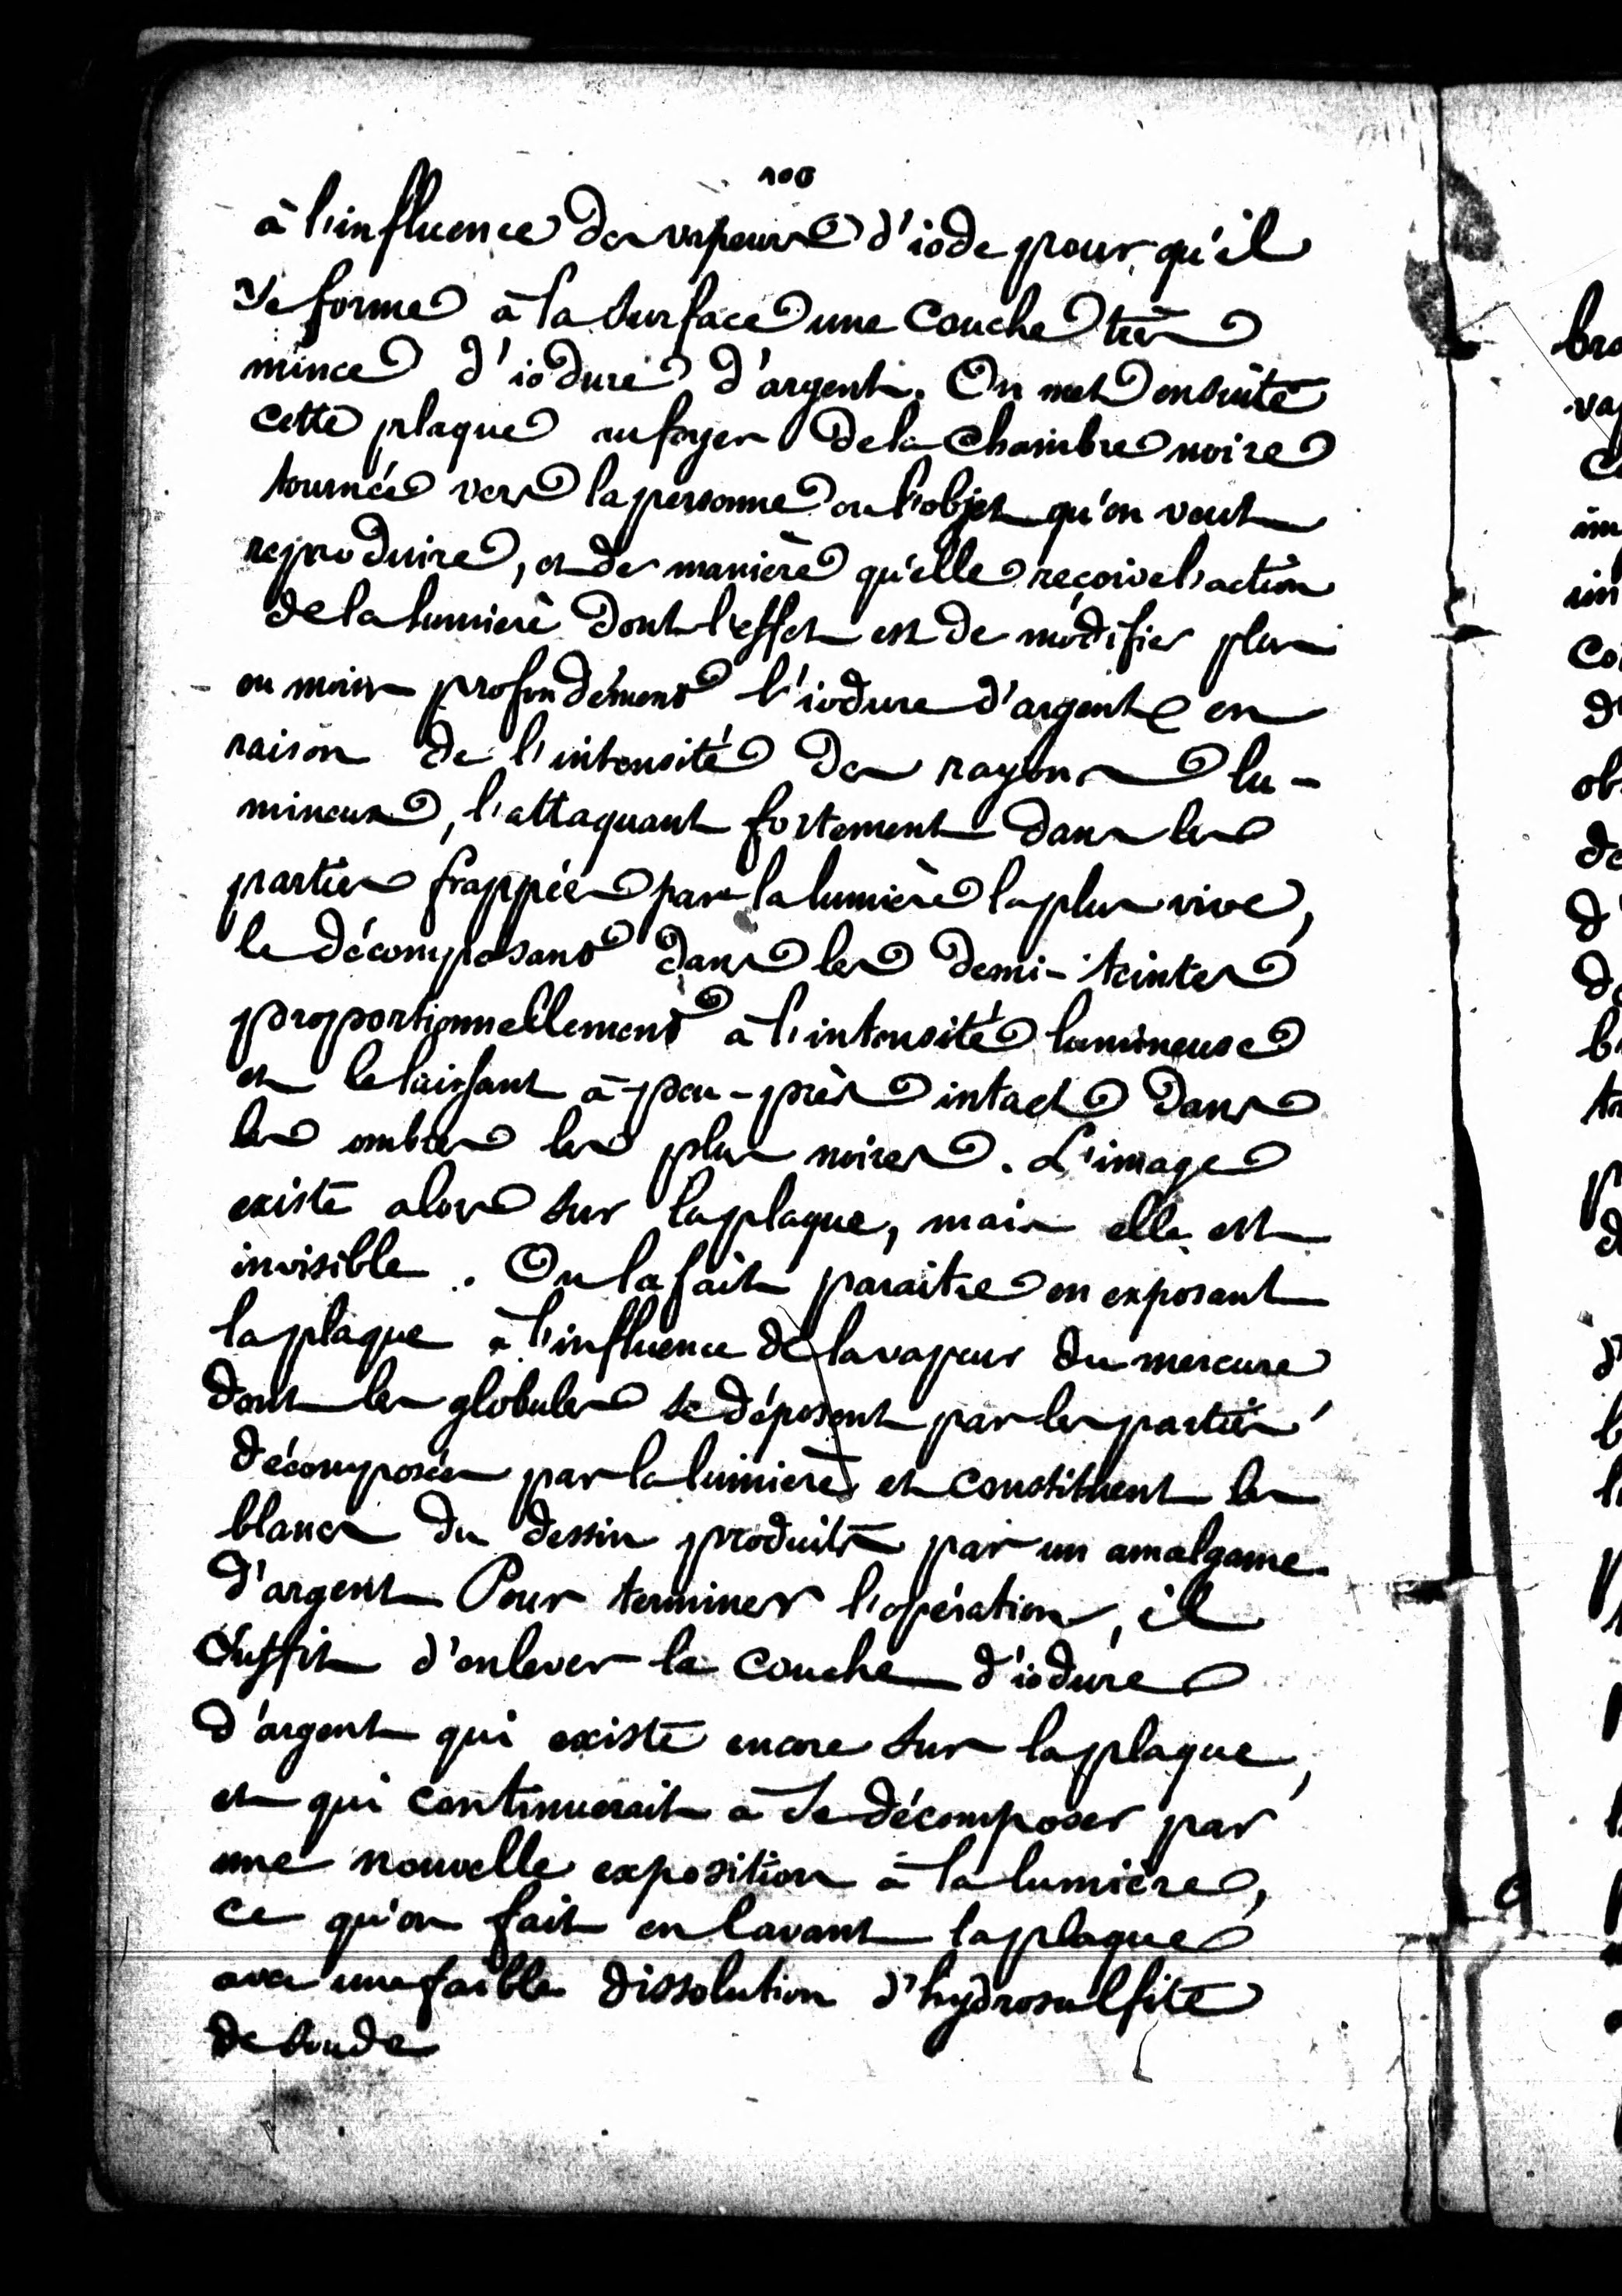 100
à l'influence des vapeurs d'iode pour qu'il
se forme à la surface une couche très
mince d'iodure d'argent. On met ensuite
cette plaque au foyer de la chambre noire
tournée vers la personne ou l'objet qu'on veut
reproduire, et de manière qu'elle reçoive l'action
de la lumière dont l'effet est de modifier plus
ou moins profondément l'iodure d'argent en
raison de l'intensité des rayons lu-
mineux, l'attaquant fortement dans les
parties frappées par la lumière la plus vive,
le décomposant dans les demi-teintes
proportionnellement à l'intensité lumineuse
et le laissant à-peu-près intact dans
les ombres les plus noires. L'image
existe alors sur la plaque, mais elle est
invisible. On la fait paraitre en exposant
la plaque à l'influence de la vapeur du mercure
dont les globules se déposent par les parties
décomposées par la lumière et constituent les
blancs du dessin produits par un amalgame
d'argent Pour terminer l'opération, il
suffit d'enlever la couche d'iodure
d'argent qui existe encore sur la plaque,
et qui continuerait à se décomposer par
une nouvelle exposition à la lumière,
ce qu'on fait en lavant la plaque
avec une faible dissolution d'hydrosulfite
de soude